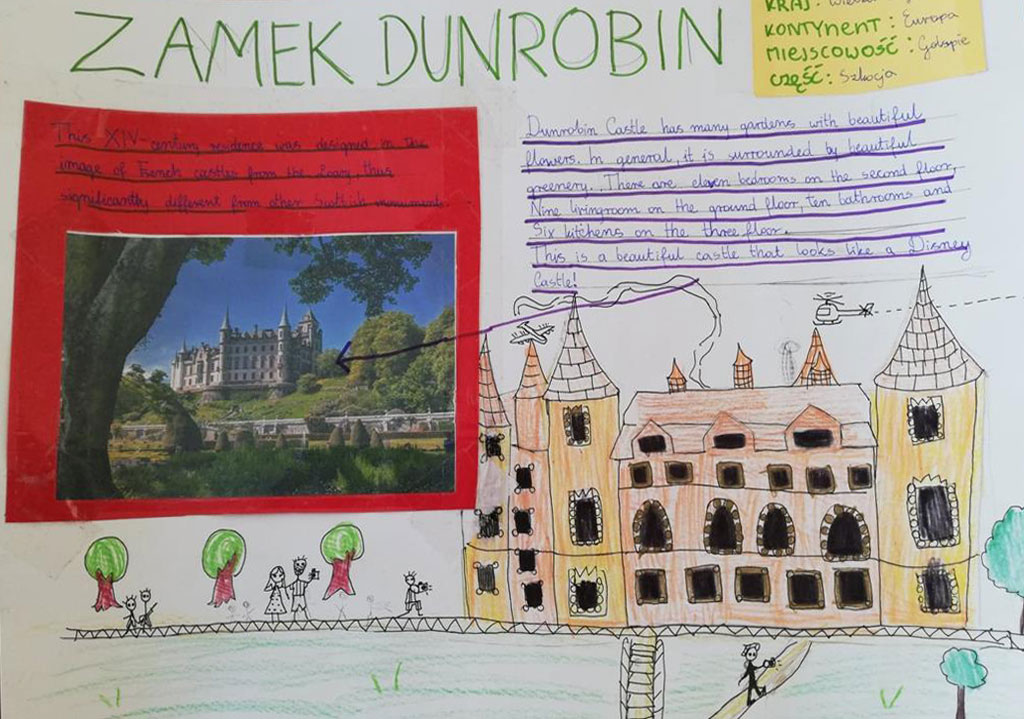 ZAMEK DUNROBIN
KRAJ:
KONTYNENT: Europa
MIEJSCOWOŚĆ: Golspie
CZĘŚĆ: Szkocja
This XIV-century residence was designed in the
image of French castles from the Loary, thus
significantly different from other Scottish monuments.
Dunrobin Castle has many gardens with beautiful
flowers. In general, it is surrounded by beautiful
greenery. There are eleven bedrooms on the second floor,
Nine livingroom on the ground floor, ten bathrooms and
Six kitchens on the three floor.
This is a beautiful castle that looks like a Disney
Castle!